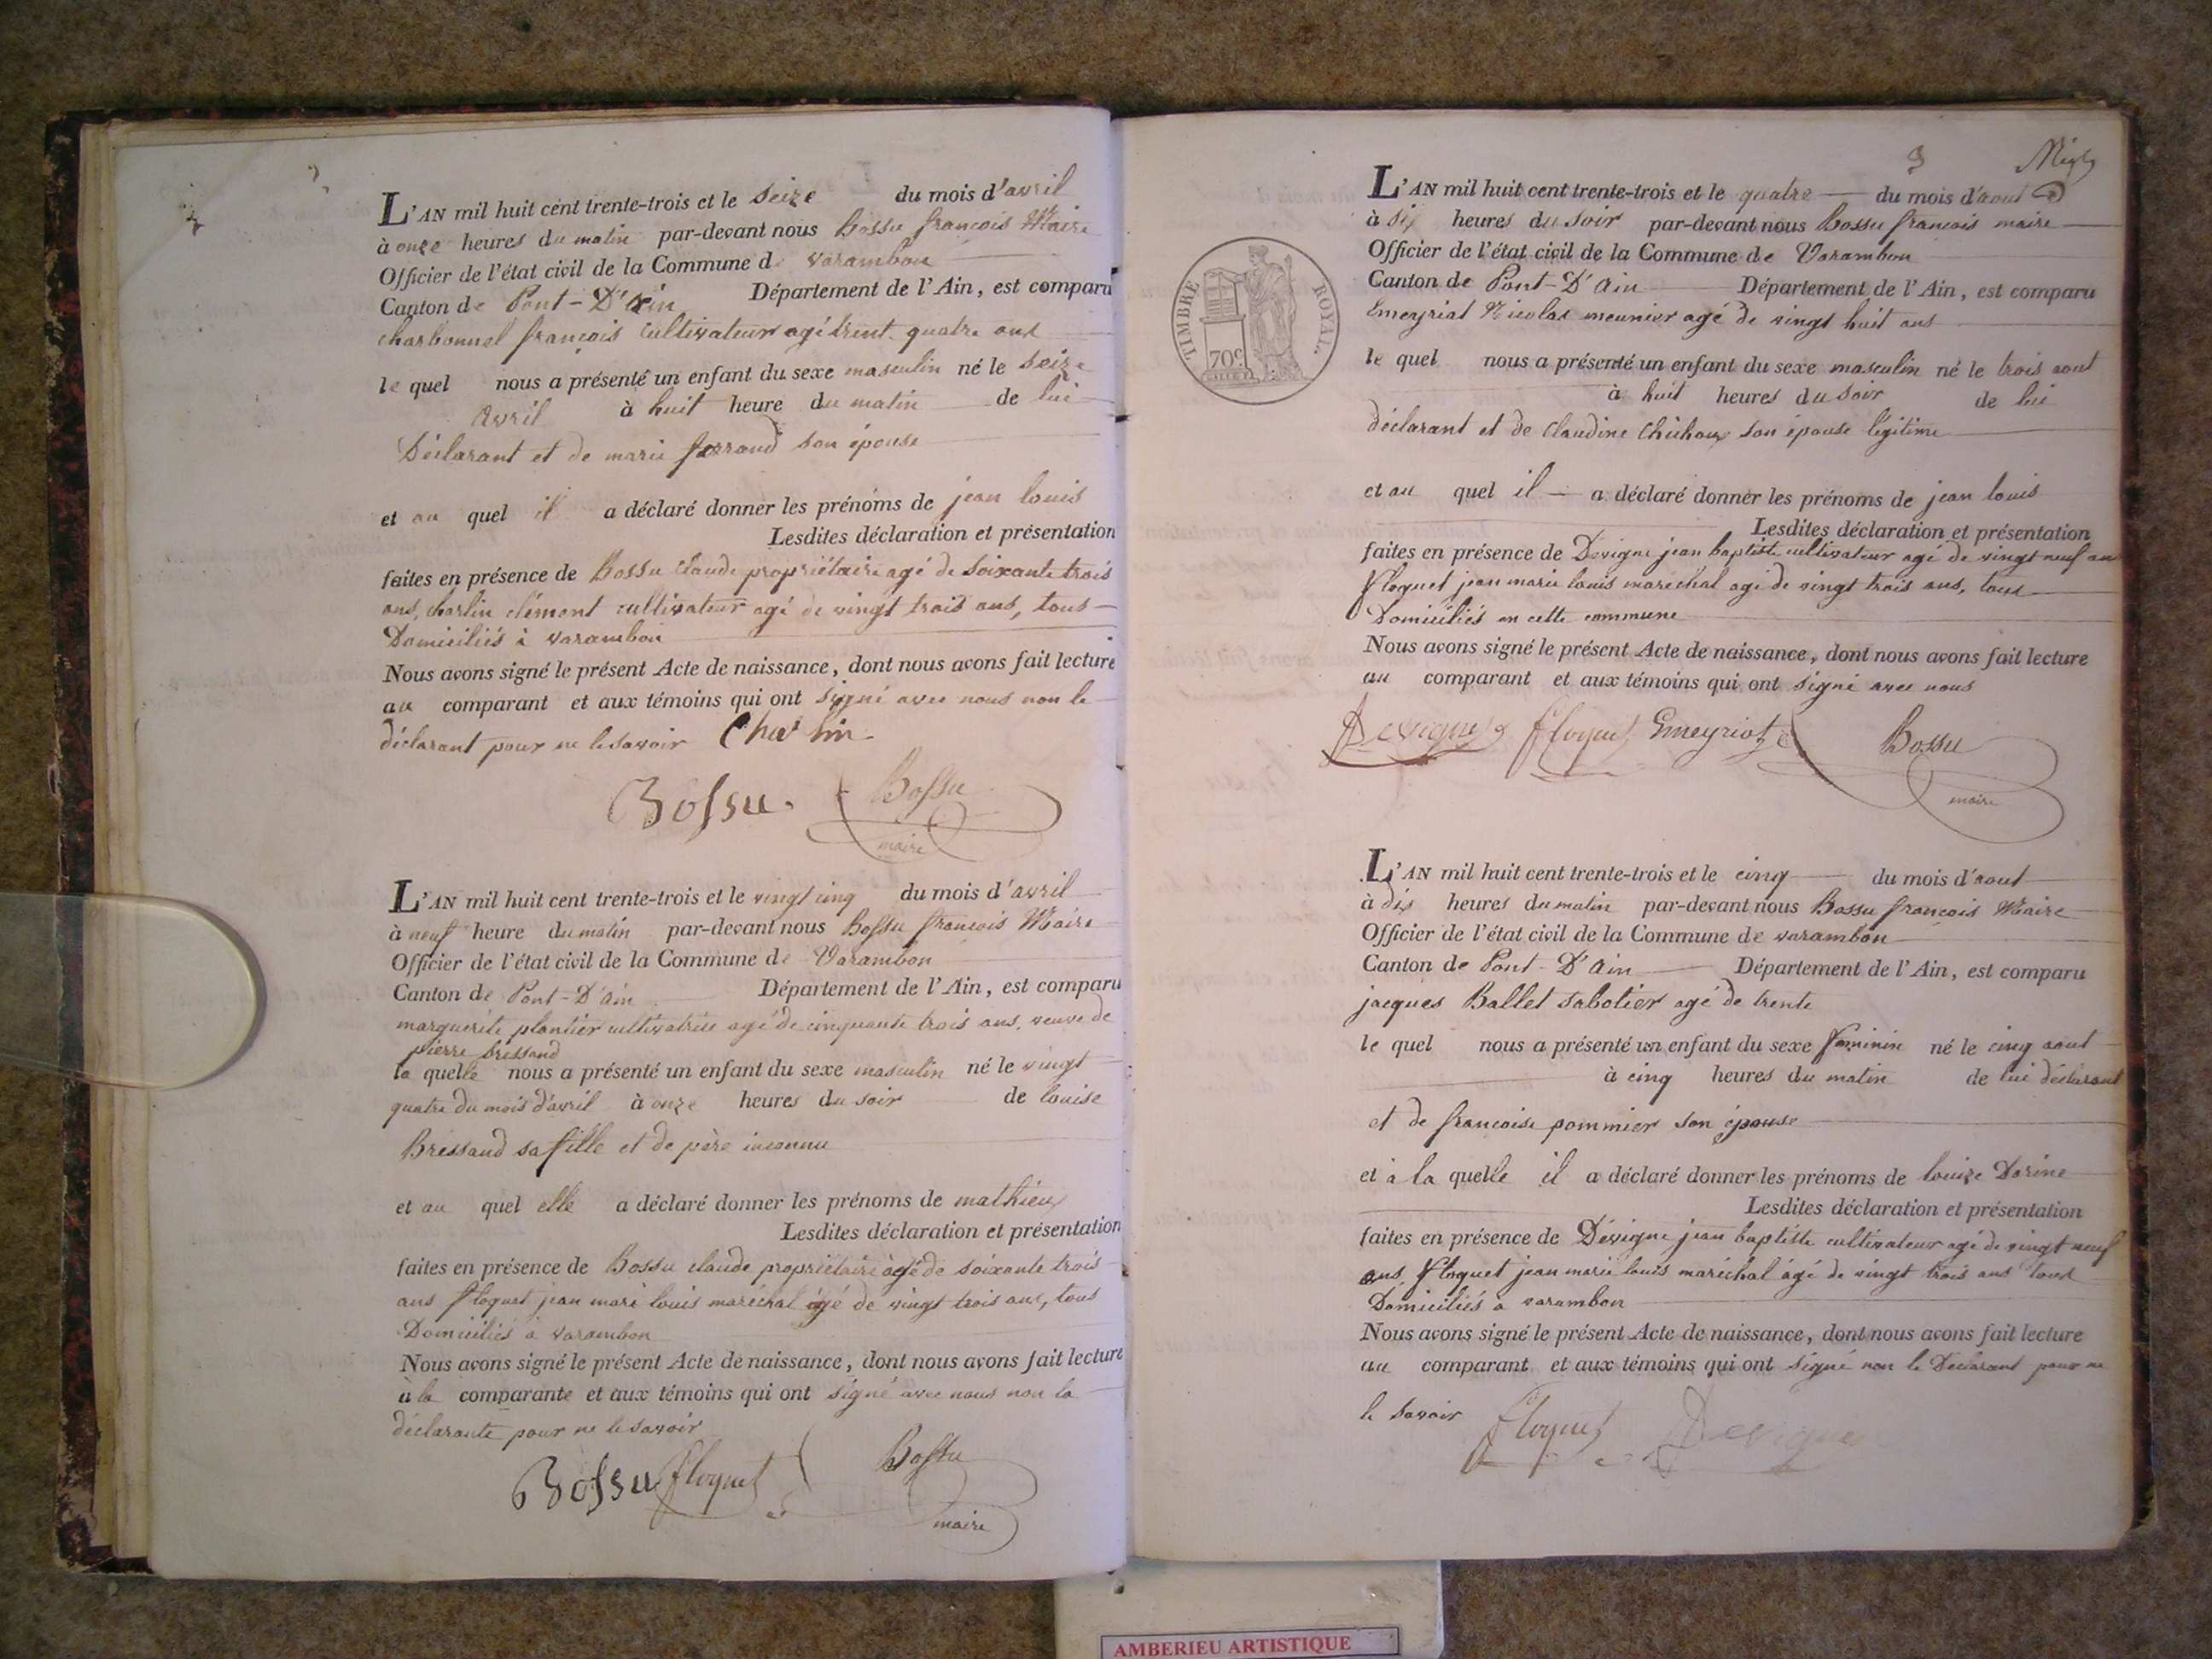 L'AN mil huit cent trente-trois et le seize du mois d'avril
à onze heures du matin par-devant nous Bossu françois Maire
Officier de l'état civil de la Commune de varambon
Canton de Pont-D'ain Département de l'Ain, est comparu
charbonnel françois cultivateur agé trent quatre ans
le quel nous a présenté un enfant du sexe masculin né le seize
avril à huit heure du matin de lui
Déclarant et de marie ferrand son épouse
et au quel il a déclaré donner les prénoms de jean louis
Lesdites déclaration et présentation
faites en présence de Bossu claude propriétaire agé de soixante trois
ans, charlin clément cultivateur agé de vingt trois ans, tous
Domiciliés à varambon
Nous avons signé le présent Acte de naissance, dont nous avons fait lecture
au comparant et aux témoins qui ont signé avec nous non le
déclarant pour ne le savoir Charlin
Bossu. Bossu
maire
L'AN mil huit cent trente-trois et le vingt cinq du mois d'avril
à neuf heure du matin par-devant nous Bossu françois Maire
Officier de l'état civil de la Commune de Varambon
Canton de Pont-D'ain Département de l'Ain, est comparu
marguerite plantier cultivatrice agé de cinquante trois ans, veuve de
pierre bressand
la quelle nous a présenté un enfant du sexe masculin né le vingt
quatre du mois d'avril à onze heures du soir de louise
Bressand sa fille et de père inconnu
et au quel elle a déclaré donner les prénoms de mathieu
Lesdites déclaration et présentation
faites en présence de Bossu claude propriétaire agé de soixante trois
ans floquet jean marie louis maréchal agé de vingt trois ans, tous
Domiciliés à varambon
Nous avons signé le présent Acte de naissance, dont nous avons fait lecture
à la comparante et aux témoins qui ont signé avec nous non la
déclarante pour ne le savoir
Bossu floquet Bossu
maire
3
L'AN mil huit cent trente-trois et le quatre du mois d'aout
à six heures du soir par-devant nous Bossu françois maire
Officier de l'état civil de la Commune de Varambon
Canton de Pont-D'ain Département de l'Ain, est comparu
Emeyriat Nicolas meunier agé de vingt huit ans
le quel nous a présenté un enfant du sexe masculin né le trois aout
à huit heures du soir de lui
déclarant et de claudine Chichoux son épouse légitime
et au quel il a déclaré donner les prénoms de jean louis
Lesdites déclaration et présentation
faites en présence de Devigne jean baptiste cultivateur agé de vingt neuf ans
floquet jean marie louis maréchal agé de vingt trois ans, tous
Domiciliés en cette commune
Nous avons signé le présent Acte de naissance, dont nous avons fait lecture
au comparant et aux témoins qui ont signé avec nous
Devigne floquet Emeyriat Bossu
maire
TIMBRE ROYAL
70c.
L'AN mil huit cent trente-trois et le cinq du mois d'aout
à dix heures du matin par-devant nous Bossu françois Maire
Officier de l'état civil de la Commune de varambon
Canton de Pont-D'ain Département de l'Ain, est comparu
jacques Ballet sabotier agé de trente
le quel nous a présenté un enfant du sexe féminin né le cinq aout
à cinq heures du matin de lui déclarant
et de françoise pommier son épouse
et à la quelle il a déclaré donner les prénoms de louize Dorine
Lesdites déclaration et présentation
faites en présence de Dévigne jean baptiste cultivateur agé de vingt neuf
ans, floquet jean marie louis maréchal agé de vingt trois ans tous
Domiciliés a varambon
Nous avons signé le présent Acte de naissance, dont nous avons fait lecture
au comparant et aux témoins qui ont signé non le Déclarant pour ne
le savoir floquet Devigne
AMBERIEU ARTISTIQUE